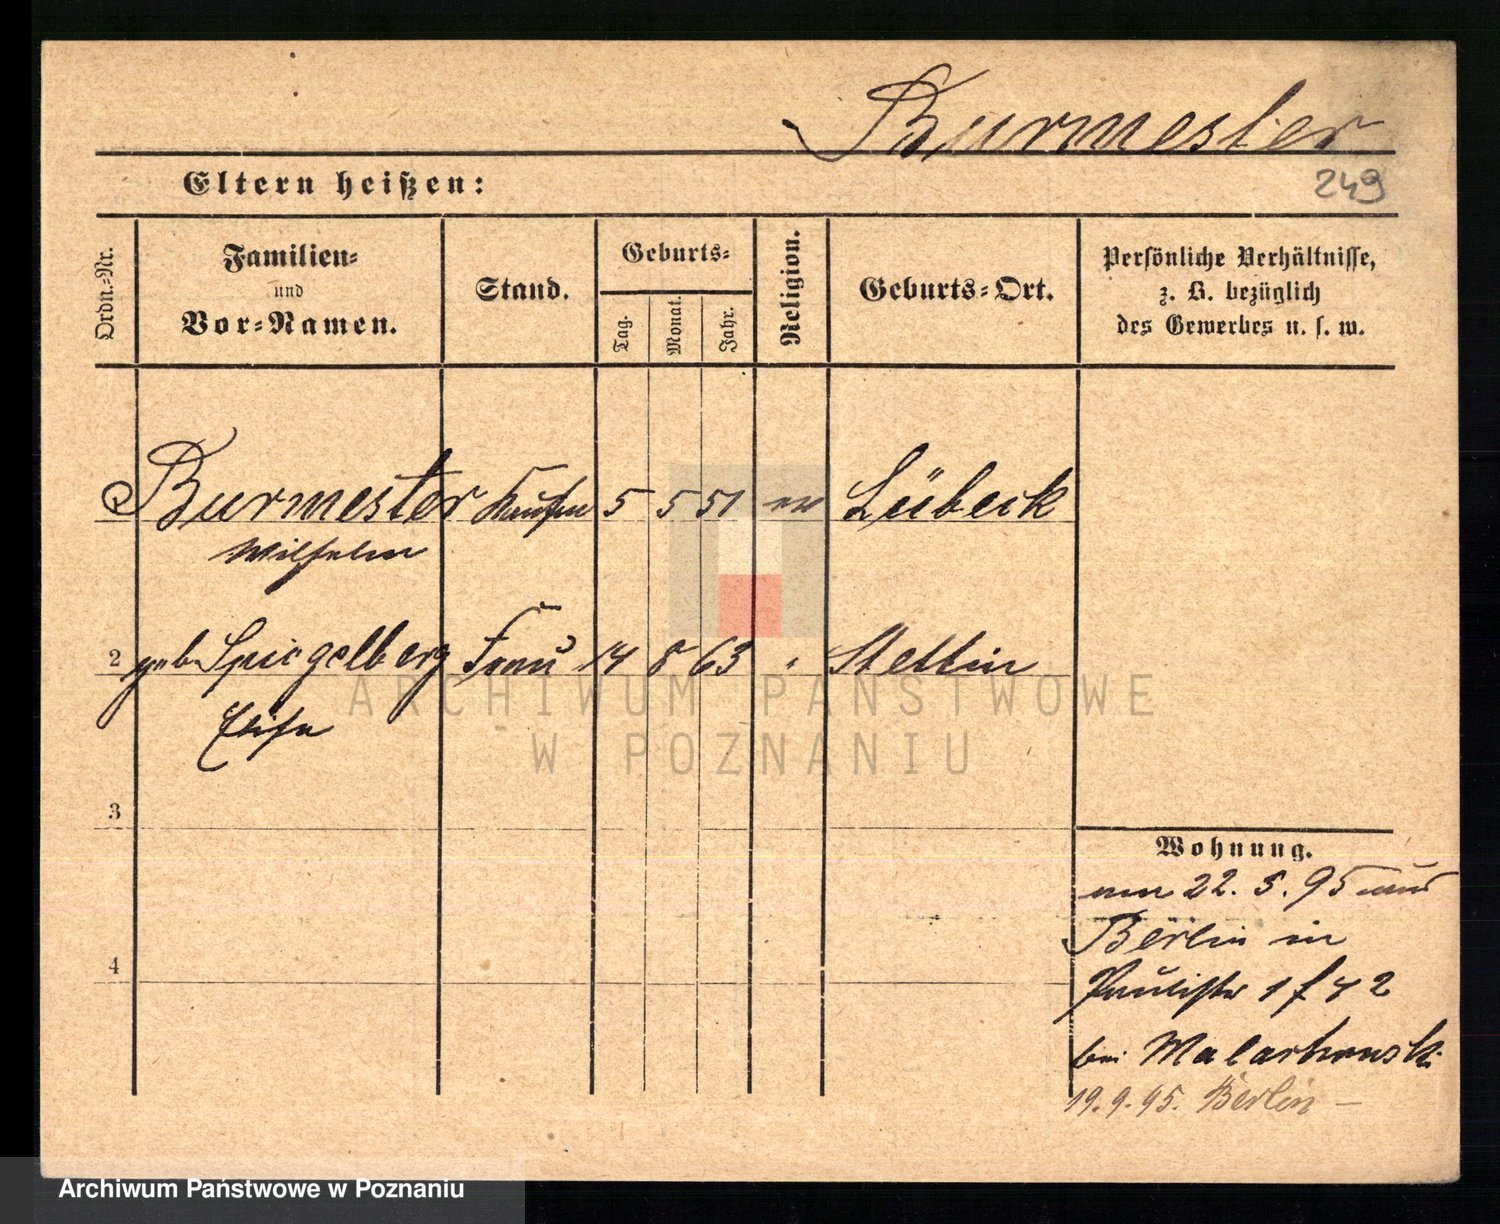 Burmester
Eltern heißen:
249
Ordn.-Nr.
Familien-
und
Vor-Namen.
Stand.
Geburts-
Tag.
Monat.
Jahr.
Religion.
Geburts-Ort.
Persönliche Verhältnisse,
z. B. bezüglich
des Gewerbes u. s. w.
Burmester Kaufm 5 5 51 ev Lübeck
Wilhelm
2 geb. Spiegelberg Frau 14 8 63 " Stettin
Elise
ARCHIWUM PAŃSTWOWE
W POZNANIU
3
Wohnung.
22. 5. 95 aus
Berlin in
4
Paulistr 1
bei
19. 9. 95. Berlin —
Archiwum Państwowe w Poznaniu